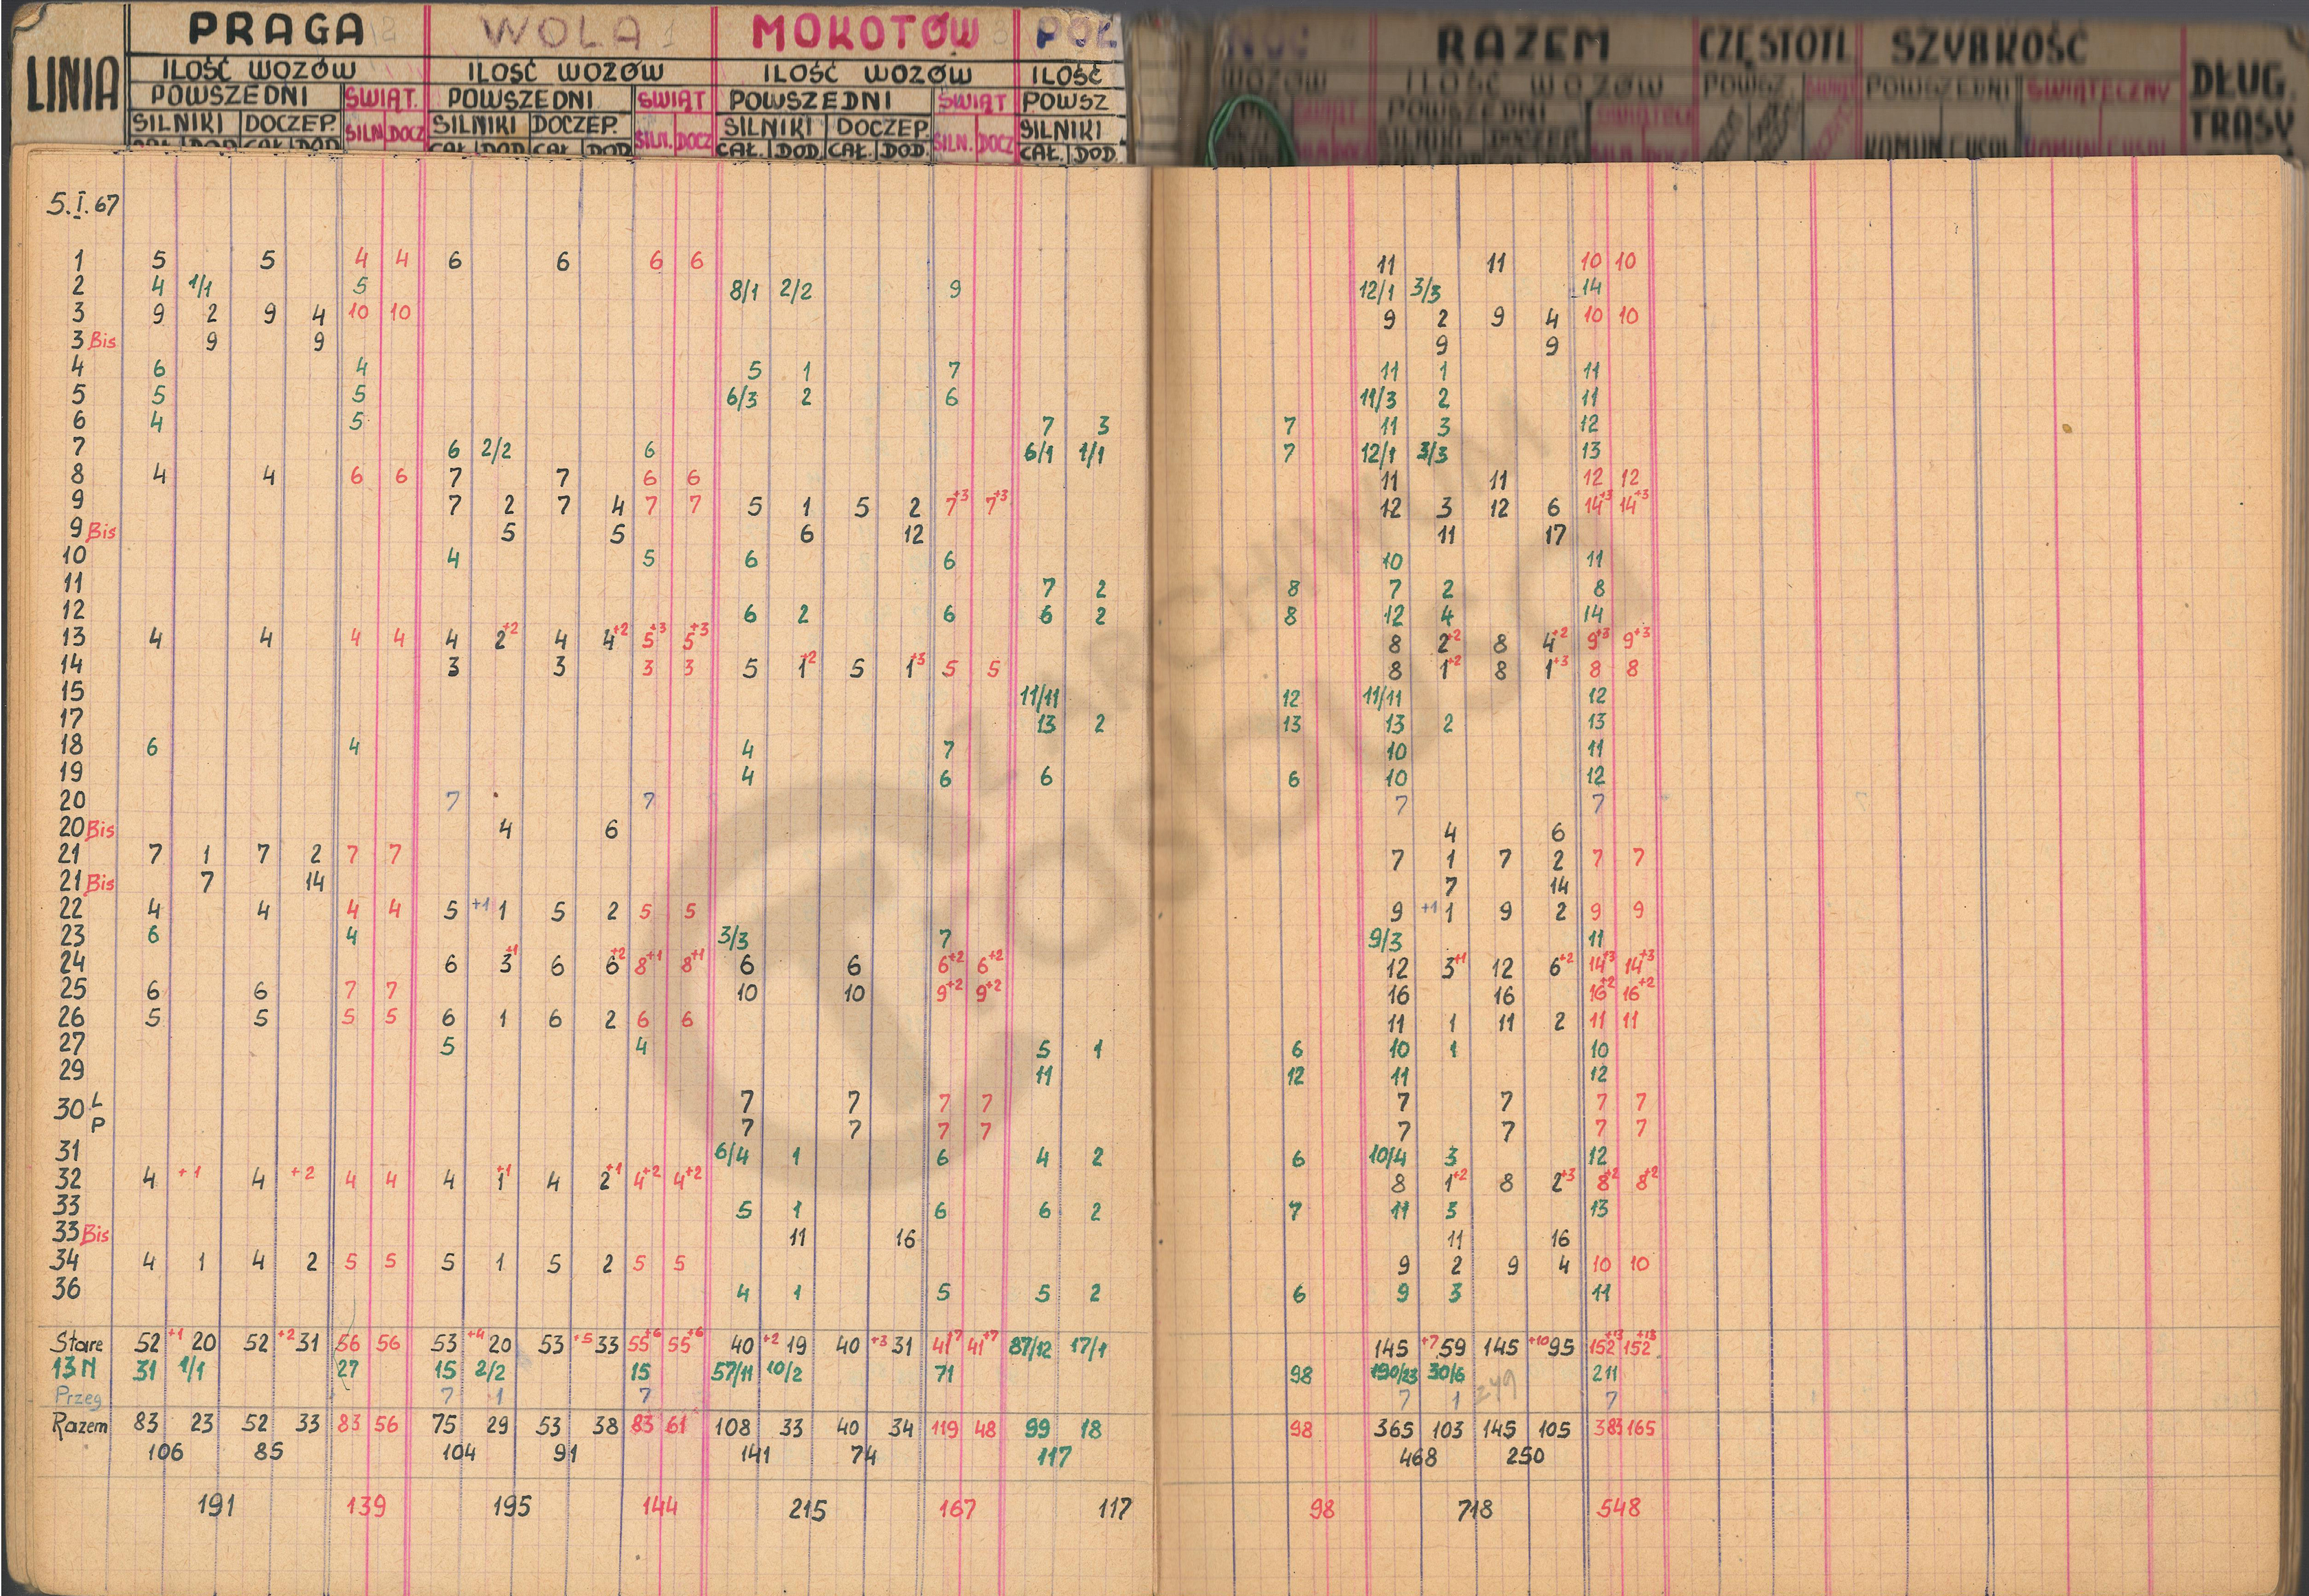 PRAGA WOLA MOKOTÓW PÓŁ NOC RAZEM CZĘSTOTL SZYBKOŚĆ
LINIA ILOŚĆ WOZÓW ILOŚĆ WOZÓW ILOŚĆ WOZÓW ILOŚĆ WOZÓW ILOŚĆ WOZÓW DŁUG. TRASY
POWSZEDNI ŚWIĄT. POWSZEDNI ŚWIĄT POWSZEDNI ŚWIĄT POWSZ ŚWIĄT POWSZEDNI ŚWIĄTECZ POWSZ. POWSZEDNI ŚWIĄTECZNY
SILNIKI DOCZEP. SILN. DOCZ SILNIKI DOCZEP. SILN. DOCZ SILNIKI DOCZEP. SILN. DOCZ SILNIKI DOCZEP.
CAŁ. DOD CAŁ. DOD CAŁ. DOD CAŁ. DOD CAŁ. DOD. CAŁ. DOD. CAŁ. DOD. KOMUN
5.I.67
1 5 5 4 4 6 6 6 6 11 11 10 10
2 4 1/1 5 8/1 2/2 9 12/1 3/3 14
3 9 2 9 4 10 10 9 2 9 4 10 10
3 Bis 9 9 9 9
4 6 4 5 1 7 11 1 11
5 5 5 6/3 2 6 11/3 2 11
6 4 5 7 3 7 11 3 12
7 6 2/2 6 6/1 1/1 7 12/1 3/3 13
8 4 4 6 6 7 7 6 6 11 11 12 12
9 7 2 7 4 7 7 5 1 5 2 7+3 7+3 12 3 12 6 14+3 14+3
9 Bis 5 5 6 12 11 17
10 4 5 6 6 10 11
11 7 2 8 7 2 8
12 6 2 6 6 2 8 12 4 14
13 4 4 4 4 4 2+2 4 4+2 5+3 5+3 8 2+2 8 4+2 9+3 9+3
14 3 3 3 3 5 1+2 5 1+3 5 5 8 1+2 8 1+3 8 8
15 11/11 12 11/11 12
17 13 2 13 13 2 13
18 6 4 4 7 10 11
19 4 6 6 6 10 12
20 7 7 7 7
20 Bis 4 6 4 6
21 7 1 7 2 7 7 7 1 7 2 7 7
21 Bis 7 14 7 14
22 4 4 4 4 5 +1 1 5 2 5 5 9 +1 1 9 2 9 9
23 6 4 3/3 7 9/3 11
24 6 3+1 6 6+2 8+1 8+1 6 6 6+2 6+2 12 3+1 12 6+2 14+3 14+3
25 6 6 7 7 10 10 9+2 9+2 16 16 16+2 16+2
26 5 5 5 5 6 1 6 2 6 6 11 1 11 2 11 11
27 5 4 5 1 6 10 1 10
29 11 12 11 12
30 L 7 7 7 7 7 7 7 7
P 7 7 7 7 7 7 7 7
31 6/4 1 6 4 2 6 10/4 3 12
32 4 +1 4 +2 4 4 4 1+1 4 2+1 4+2 4+2 8 1+2 8 2+3 8+2 8+2
33 5 1 6 6 2 7 11 3 13
33 Bis 11 16 11 16
34 4 1 4 2 5 5 5 1 5 2 5 5 9 2 9 4 10 10
36 4 1 5 5 2 6 9 3 11
Stare 52 +1 20 52 +2 31 56 56 53 +4 20 53 +5 33 55+6 55+6 40 +2 19 40 +3 31 41+7 41+7 87/12 17/1 145 +7 59 145 +10 95 152+13 152+13
13 N 31 1/1 27 15 2/2 15 57/11 10/2 71 98 190/23 30/6 211
Przeg 7 1 7 7 1 249 7
Razem 83 23 52 33 83 56 75 29 53 38 83 61 108 33 40 34 119 48 99 18 98 365 103 145 105 383 165
106 85 104 91 141 74 117 468 250
191 139 195 144 215 167 117 98 718 548